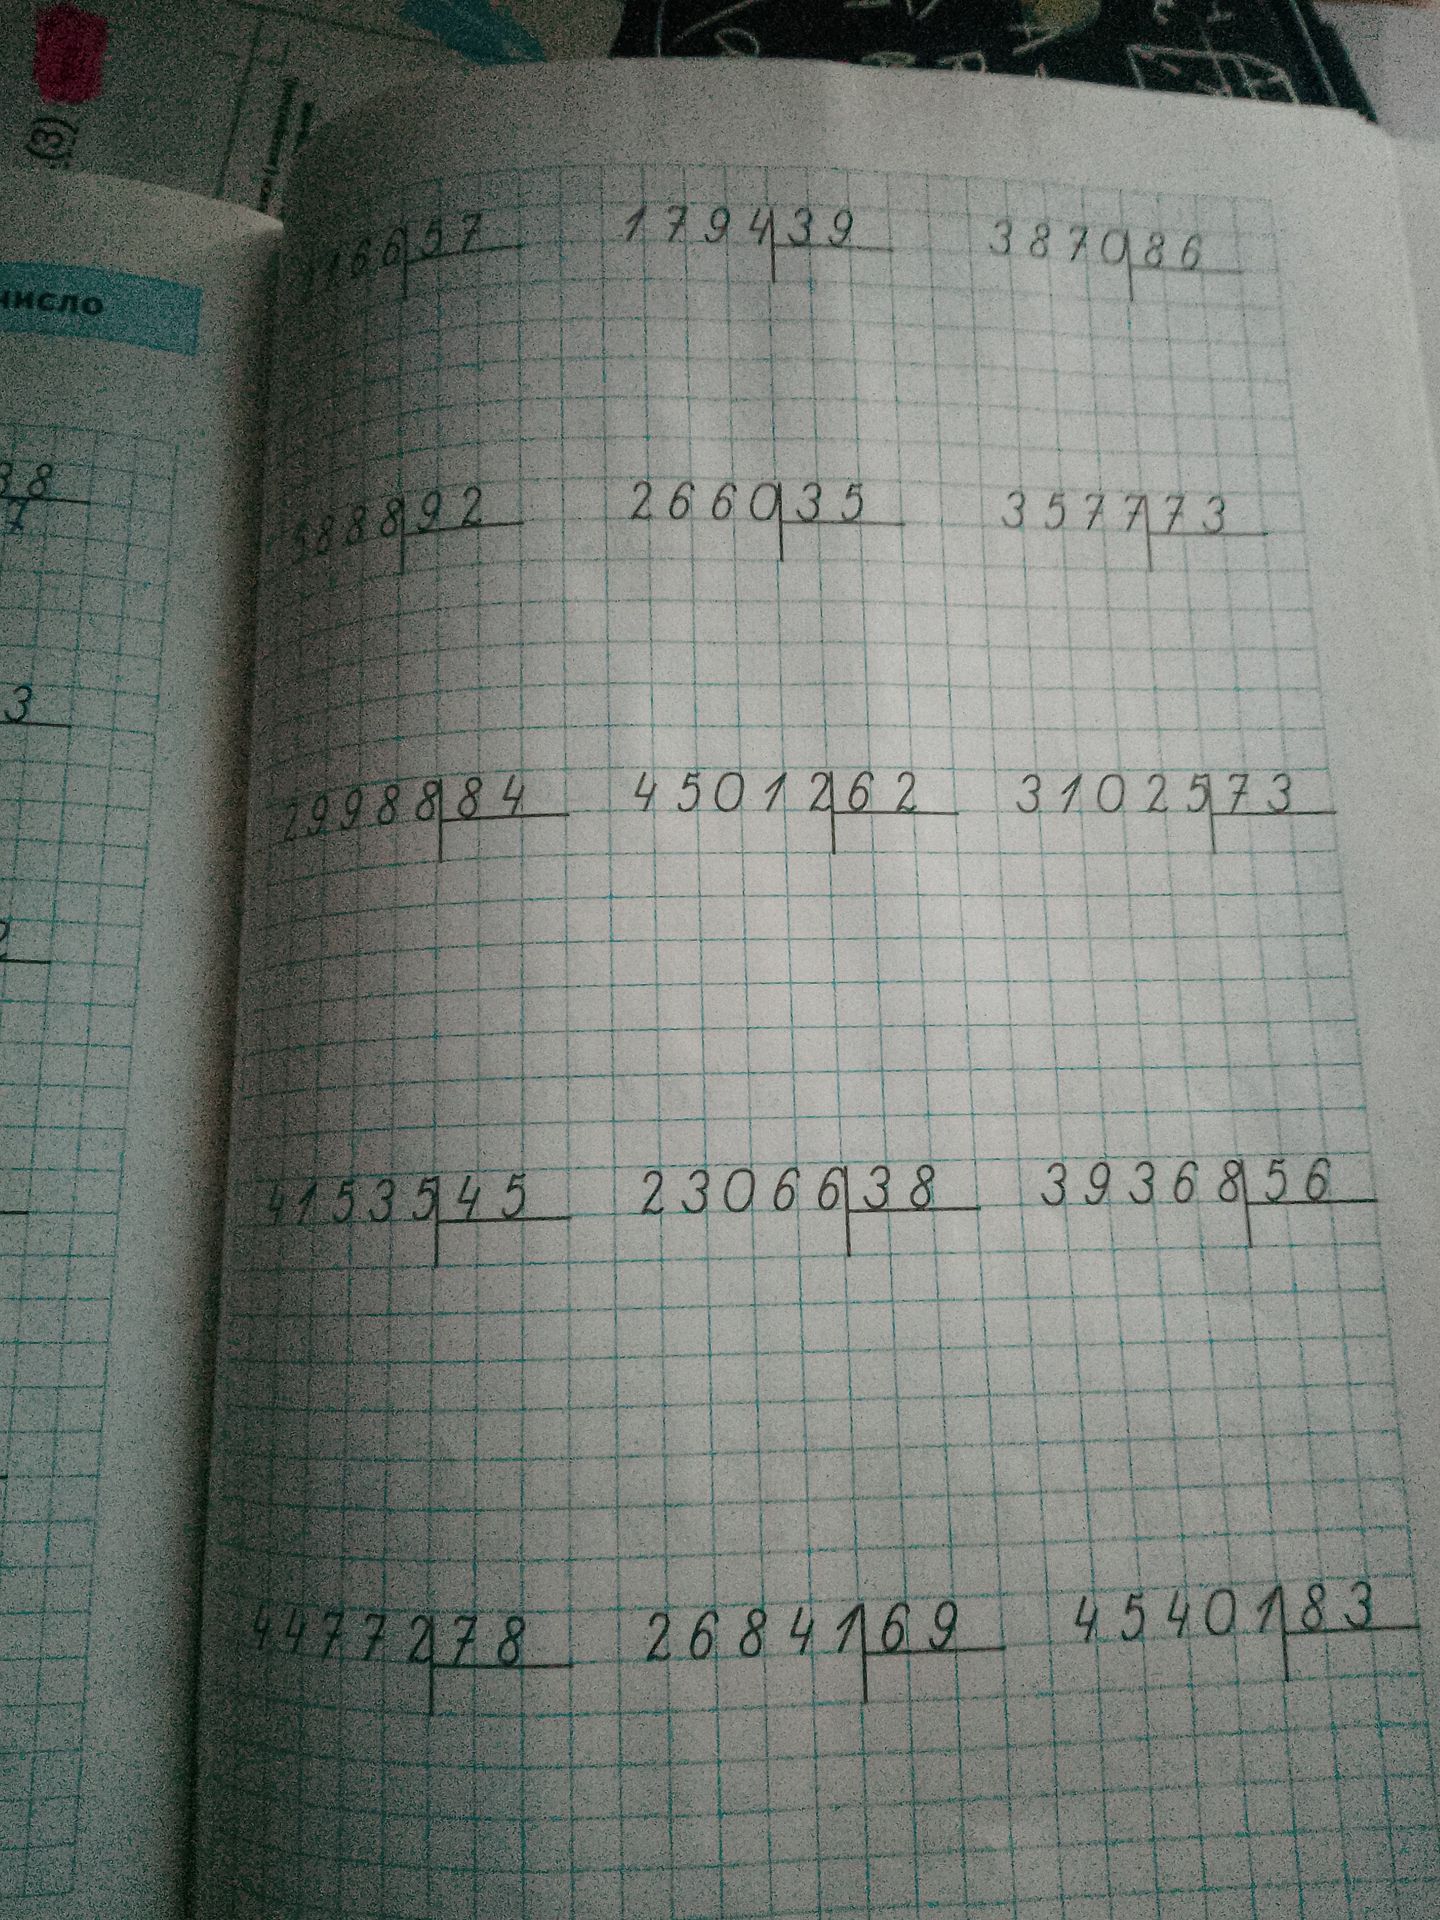 (3)
число
38
7
3
2
2166 57 1794 39 3870 86
5888 92 2660 35 3577 73
29988 84 45012 62 31025 73
41535 45 23066 38 39368 56
44772 78 26841 69 45401 83